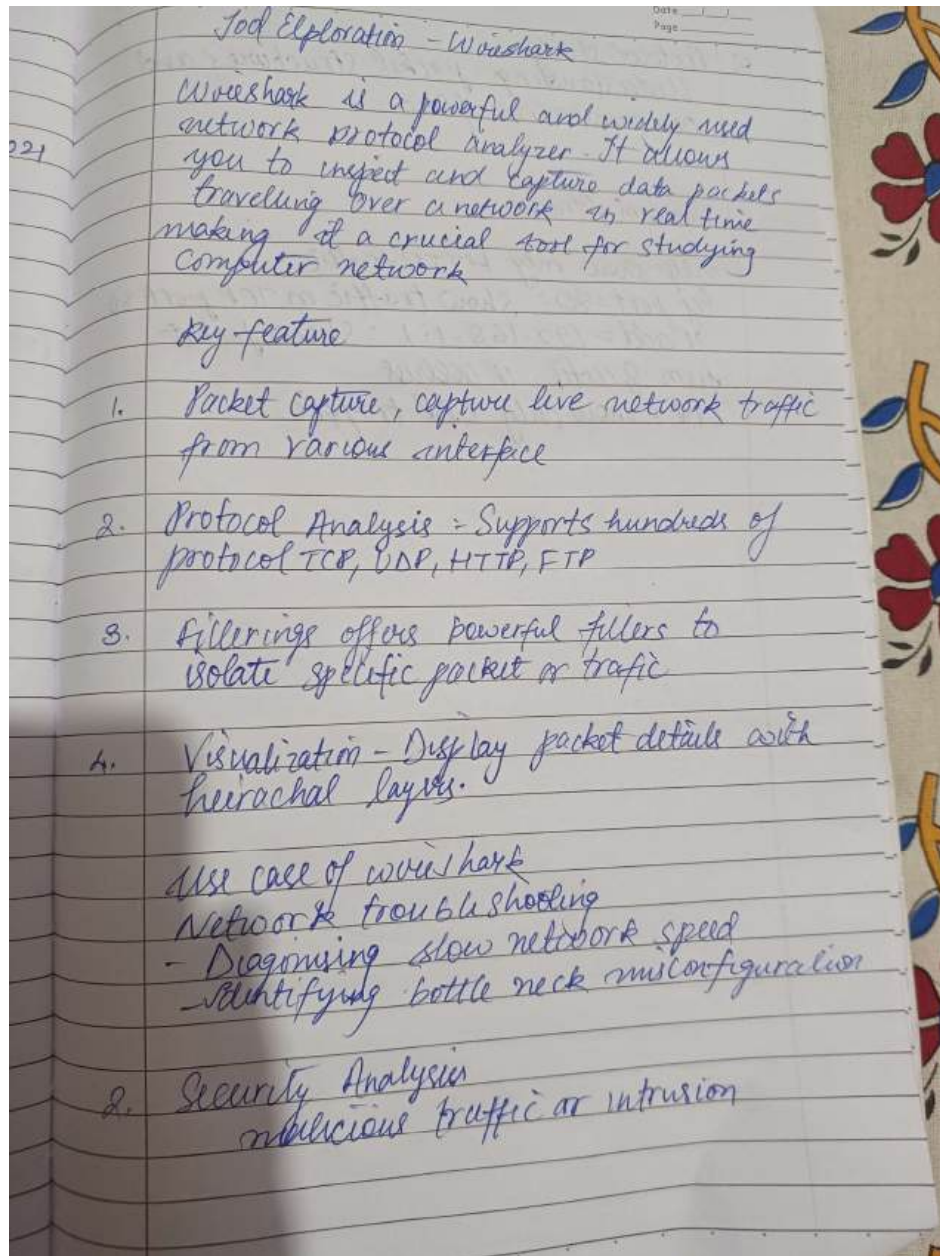 Date
Page
Tool Elploration - Wireshark
Wireshark is a powerful and widely used
network protocol analyzer. It allows
021
you to inspect and capture data packets
travelling over a network in real time
making it a crucial tool for studying
Computer network
key feature
1. Packet capture, capture live network traffic
from various interface
2. Protocol Analysis :- Supports hundreds of
protocol TCP, UDP, HTTP, FTP
3. Fillerings offers powerful fillers to
isolate specific packet or trafic
4. Visualization - Display packet details with
heirachal layers.
Use case of wireshark
Network troubleshooting
- Diagonising slow network speed
- Identifying bottle neck misconfiguration
2. Security Analysis
malicious traffic or intrusion